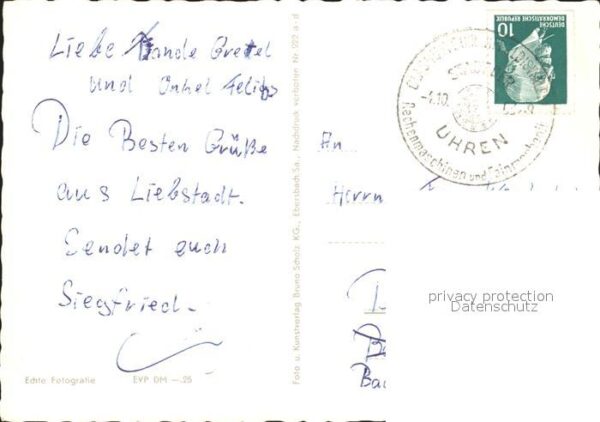 Liebe Tande Gretel
und Onkel Felix
Die Besten Grüße
aus Liebstadt.
Sendet euch
Siegfried.
Echte Fotografie EVP DM —.25
Foto u. Kunstverlag Bruno Scholz KG., Ebersbach Sa., Nachdruck verboten Nr.
DEUTSCHE
DEMOKRATISCHE REPUBLIK
10
-4.10.
UHREN
Rechenmaschinen und
An
Herrn
privacy protection
Datenschutz